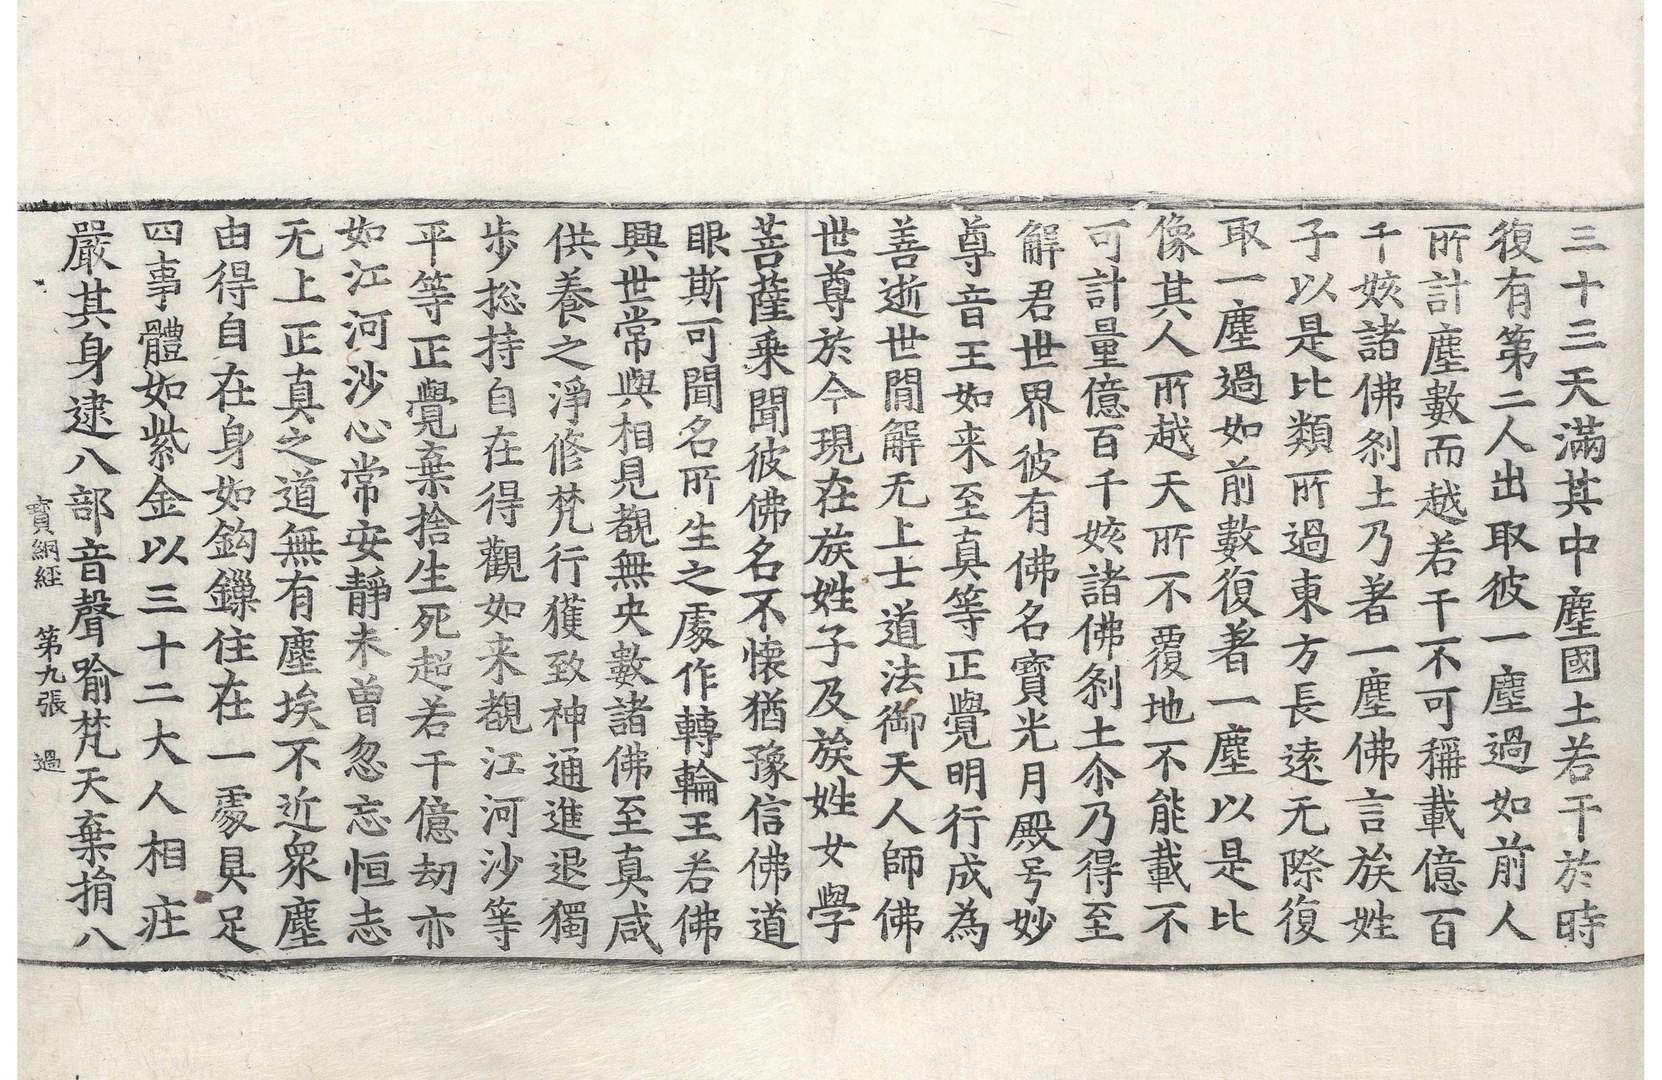 三十三天滿其中塵國土若干於時
復有第二人出取彼一塵過如前人
所計塵數而越若干不可稱載億百
千姟諸佛剎土乃著一塵佛言族姓
子以是比類所過東方長遠无際復
取一塵過如前數復著一塵以是比
像其人所越天所不覆地不能載不
可計量億百千姟諸佛剎土尒乃得至
解君世界彼有佛名寶光月殿号妙
尊音王如来至真等正覺明行成為
善逝世閒解无上士道法御天人師佛
世尊於今現在族姓子及族姓女學
菩薩乘聞彼佛名不懐猶豫信佛道
眼斯可聞名所生之處作轉輪王若佛
興世常與相見覩無央數諸佛至真咸
供養之淨修梵行獲致神通進退獨
步捴持自在得觀如来覩江河沙等
平等正覺棄捨生死超若干億劫亦
如江河沙心常安靜未曽忽忘恒志
无上正真之道無有塵埃不近衆塵
由得自在身如鈎鏁住在一處具足
四事體如紫金以三十二大人相荘
嚴其身逮八部音聲喻梵天棄捐八
寶網經 第九張 過